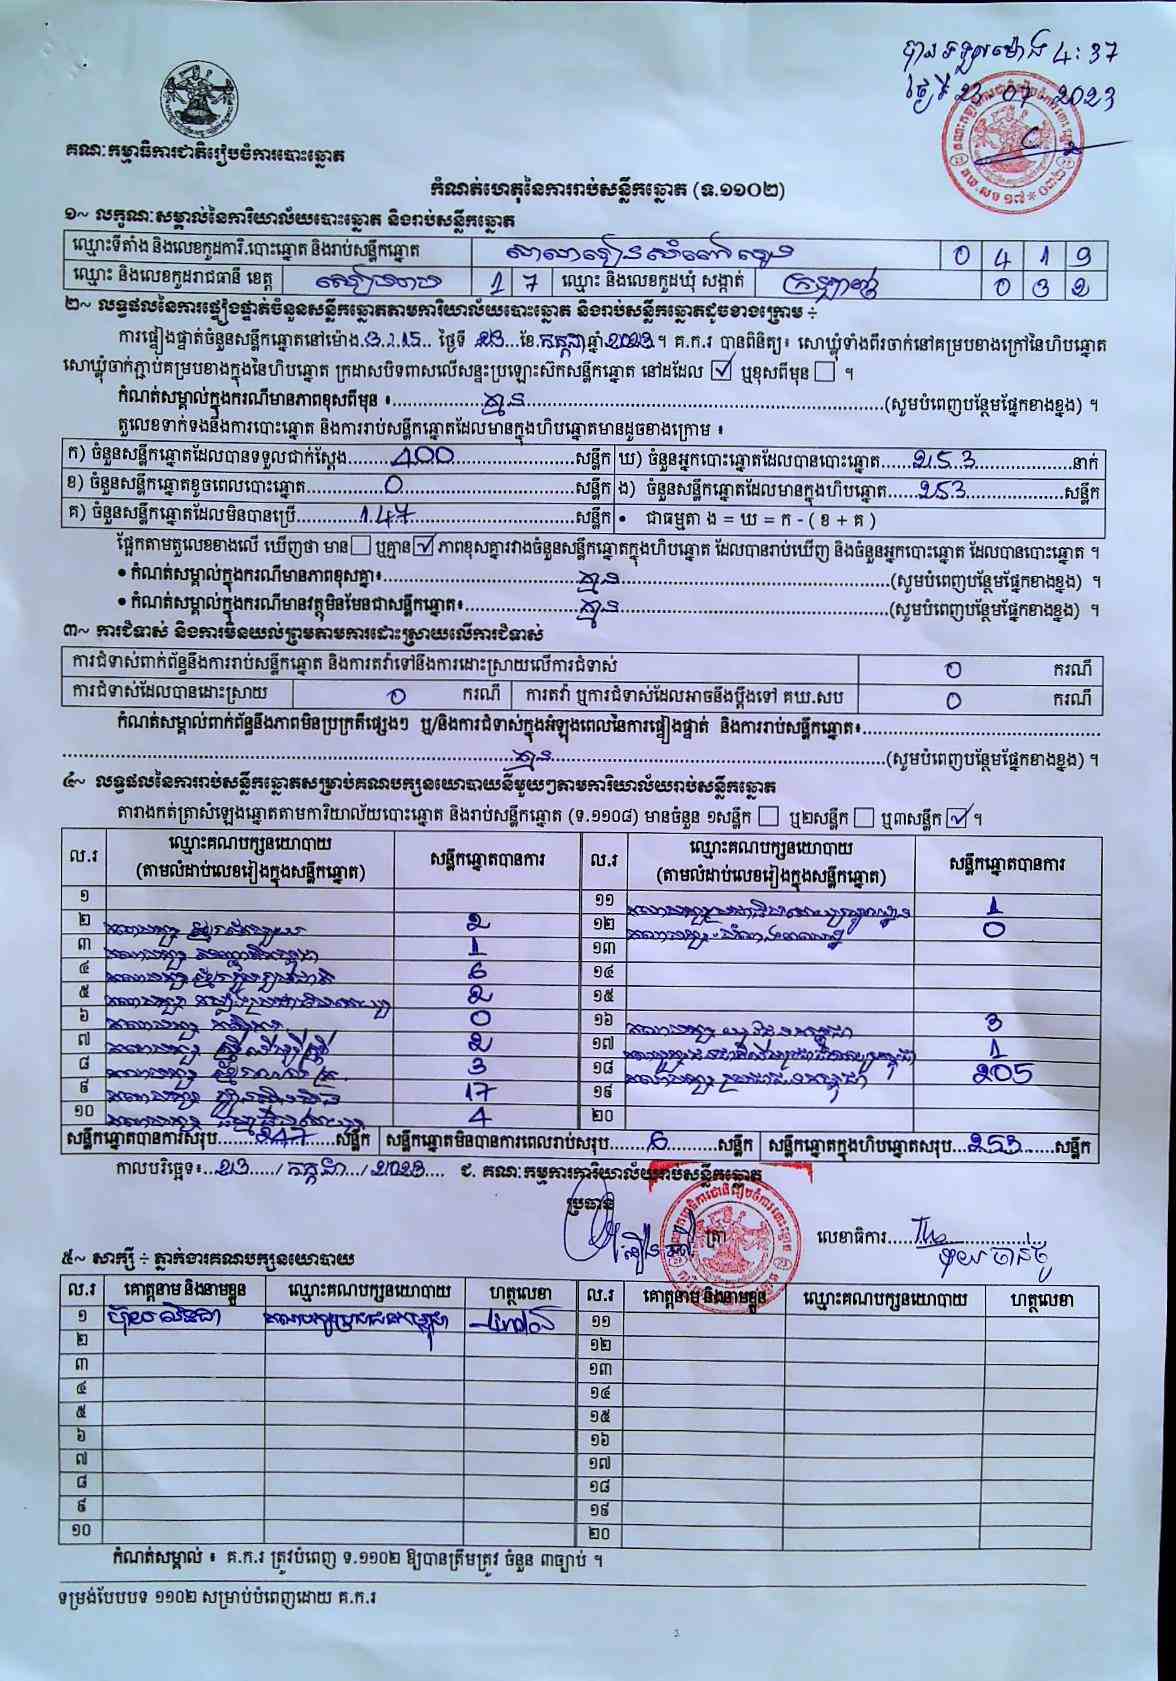 បានទទួលម៉ោង 4:37
ថ្ងៃទី 23 07 2023
គណៈកម្មាធិការជាតិរៀបចំការបោះឆ្នោត
កំណត់ហេតុនៃការរាប់សន្លឹកឆ្នោត (ទ.១១០២)
១~ លក្ខណៈសម្គាល់នៃការិយាល័យបោះឆ្នោត និងរាប់សន្លឹកឆ្នោត
ឈ្មោះទីតាំង និងលេខកូដការិ.បោះឆ្នោត និងរាប់សន្លឹកឆ្នោត សាលារៀន 0 4 1 9
ឈ្មោះ និងលេខកូដរាជធានី ខេត្ត សៀមរាប 1 7 ឈ្មោះ និងលេខកូដឃុំ សង្កាត់ ក្រឡាញ់ 0 3 2
២~ លទ្ធផលនៃការផ្ទៀងផ្ទាត់ចំនួនសន្លឹកឆ្នោតតាមការិយាល័យបោះឆ្នោត និងរាប់សន្លឹកឆ្នោតដូចខាងក្រោម ÷
ការផ្ទៀងផ្ទាត់ចំនួនសន្លឹកឆ្នោតនៅម៉ោង 3:15 ថ្ងៃទី 23 ខែ កក្កដា ឆ្នាំ 2023 ។ គ.ក.រ បានពិនិត្យ៖ សោឃ្លុំទាំងពីរចាក់នៅគម្របខាងក្រៅនៃហិបឆ្នោត
សោឃ្លុំចាក់ភ្ជាប់គម្របខាងក្នុងនៃហិបឆ្នោត ក្រដាសបិទពាសលើសន្ទះប្រឡោះស៊កសន្លឹកឆ្នោត នៅដដែល ☑ ឬខុសពីមុន ☐ ។
កំណត់សម្គាល់ក្នុងករណីមានភាពខុសពីមុន ៖ គ្មាន (សូមបំពេញបន្ថែមផ្នែកខាងខ្នង) ។
តួលេខទាក់ទងនឹងការបោះឆ្នោត និងការរាប់សន្លឹកឆ្នោតដែលមានក្នុងហិបឆ្នោតមានដូចខាងក្រោម ៖
ក) ចំនួនសន្លឹកឆ្នោតដែលបានទទួលជាក់ស្តែង 400 សន្លឹក ឃ) ចំនួនអ្នកបោះឆ្នោតដែលបានបោះឆ្នោត 253 នាក់
ខ) ចំនួនសន្លឹកឆ្នោតខូចពេលបោះឆ្នោត 0 សន្លឹក ង) ចំនួនសន្លឹកឆ្នោតដែលមានក្នុងហិបឆ្នោត 253 សន្លឹក
គ) ចំនួនសន្លឹកឆ្នោតដែលមិនបានប្រើ 147 សន្លឹក • ជាធម្មតា ង = ឃ = ក - ( ខ + គ )
ផ្អែកតាមតួលេខខាងលើ ឃើញថា មាន ☐ ឬគ្មាន ☑ ភាពខុសគ្នារវាងចំនួនសន្លឹកឆ្នោតក្នុងហិបឆ្នោត ដែលបានរាប់ឃើញ និងចំនួនអ្នកបោះឆ្នោត ដែលបានបោះឆ្នោត ។
• កំណត់សម្គាល់ក្នុងករណីមានភាពខុសគ្នា៖ គ្មាន (សូមបំពេញបន្ថែមផ្នែកខាងខ្នង) ។
• កំណត់សម្គាល់ក្នុងករណីមានវត្ថុមិនមែនជាសន្លឹកឆ្នោត៖ គ្មាន (សូមបំពេញបន្ថែមផ្នែកខាងខ្នង) ។
៣~ ការជំទាស់ និងការមិនយល់ព្រមតាមការដោះស្រាយលើការជំទាស់
ការជំទាស់ពាក់ព័ន្ធនឹងការរាប់សន្លឹកឆ្នោត និងការតវ៉ាទៅនឹងការដោះស្រាយលើការជំទាស់ 0 ករណី
ការជំទាស់ដែលបានដោះស្រាយ 0 ករណី ការតវ៉ា ឬការជំទាស់ដែលអាចនឹងប្តឹងទៅ គឃ.សប 0 ករណី
កំណត់សម្គាល់ពាក់ព័ន្ធនឹងភាពមិនប្រក្រតីផ្សេងៗ ឬ/និងការជំទាស់ក្នុងអំឡុងពេលនៃការផ្ទៀងផ្ទាត់ និងការរាប់សន្លឹកឆ្នោត៖
គ្មាន (សូមបំពេញបន្ថែមផ្នែកខាងខ្នង) ។
៤~ លទ្ធផលនៃការរាប់សន្លឹកឆ្នោតសម្រាប់គណបក្សនយោបាយនីមួយៗតាមការិយាល័យរាប់សន្លឹកឆ្នោត
តារាងកត់ត្រាសំឡេងឆ្នោតតាមការិយាល័យបោះឆ្នោត និងរាប់សន្លឹកឆ្នោត (ទ.១១០៨) មានចំនួន ១សន្លឹក ☐ ឬ២សន្លឹក ☐ ឬ៣សន្លឹក ☑ ។
ល.រ ឈ្មោះគណបក្សនយោបាយ (តាមលំដាប់លេខរៀងក្នុងសន្លឹកឆ្នោត) សន្លឹកឆ្នោតបានការ ល.រ ឈ្មោះគណបក្សនយោបាយ (តាមលំដាប់លេខរៀងក្នុងសន្លឹកឆ្នោត) សន្លឹកឆ្នោតបានការ
១ ១១ 1
២ គណបក្ស 2 ១២ 0
៣ គណបក្ស 1 ១៣
៤ គណបក្ស 6 ១៤
៥ គណបក្ស 2 ១៥
៦ គណបក្ស 0 ១៦ គណបក្ស 3
៧ គណបក្ស 2 ១៧ 1
៨ គណបក្ស 3 ១៨ គណបក្ស ប្រជាជនកម្ពុជា 205
៩ គណបក្ស 17 ១៩
១០ គណបក្ស 4 ២០
សន្លឹកឆ្នោតបានការសរុប 247 សន្លឹក សន្លឹកឆ្នោតមិនបានការពេលរាប់សរុប 6 សន្លឹក សន្លឹកឆ្នោតក្នុងហិបឆ្នោតសរុប 253 សន្លឹក
កាលបរិច្ឆេទ៖ 23 / កក្កដា / 2023 ជ. គណៈកម្មការការិយាល័យរាប់សន្លឹកឆ្នោត
ប្រធាន
ត្រា លេខាធិការ
៥~ សាក្សី ÷ ភ្នាក់ងារគណបក្សនយោបាយ
ល.រ គោត្តនាម និងនាមខ្លួន ឈ្មោះគណបក្សនយោបាយ ហត្ថលេខា ល.រ គោត្តនាម និងនាមខ្លួន ឈ្មោះគណបក្សនយោបាយ ហត្ថលេខា
១ គណបក្សប្រជាជនកម្ពុជា ១១
២ ១២
៣ ១៣
៤ ១៤
៥ ១៥
៦ ១៦
៧ ១៧
៨ ១៨
៩ ១៩
១០ ២០
កំណត់សម្គាល់ ៖ គ.ក.រ ត្រូវបំពេញ ទ.១១០២ ឱ្យបានត្រឹមត្រូវ ចំនួន ៣ច្បាប់ ។
ទម្រង់បែបបទ ១១០២ សម្រាប់បំពេញដោយ គ.ក.រ